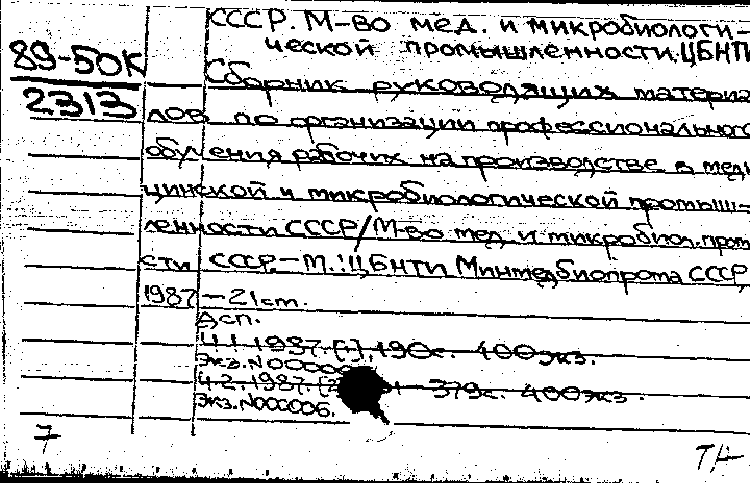 СССР. М-во мед. и микробиологи-
ческой промышленности. ЦБНТИ
89-50К
Сборник руководящих материа
2313
лов по организации профессионального
обучения рабочих на производстве в меди
цинской и микробиологической промыш-
ленности СССР/М-во мед. и микробиол. пром
сти СССР.-М.:ЦБНТИ Минмедбиопрома СССР,
1987 -21см.
Дсп.
Ч.1. 1987. [ ], 190с. 400экз.
Экз.N
Ч.2. 1987. 379с. 400экз.
Экз.N000006.
7
ТН